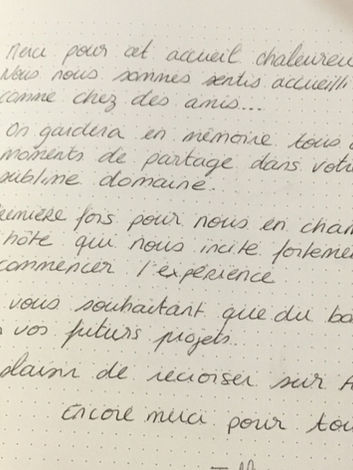 Merci pour cet accueil chaleureu
Nous nous sommes sentis accueilli
comme chez des amis...
On gardera en mémoire tous
moments de partage dans votr
sublime domaine.
remière fois pour nous en cham
hôte qui nous incite fortemen
commencer l'expérience
vous souhaitant que du bo
vos futurs projets.
plaisir de recroiser sur
Encore merci pour tou